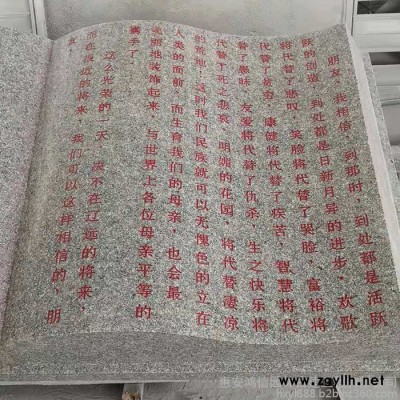 朋友,我相信,到那时,到处都是活跃
跃的创造,到处都是日新月异的进步,欢歌
将代替了悲叹,笑脸将代替了哭脸,富裕将
代替了贫穷,康健将代替了疾苦,智慧将代
替了愚昧,友爱将代替了仇杀,生之快乐将
代替了死之悲哀,明媚的花园,将代替凄凉
的荒地!这时我们民族就可以无愧色的立在
人类的面前,而生育我们的母亲,也会最
美丽地装饰起来,与世界上各位母亲平等的
携手了。
这么光荣的一天,决不在辽远的将来,
而在很近的将来,我们可以这样相信的,朋
友!
惠安鸿信
www.zgyllh.net